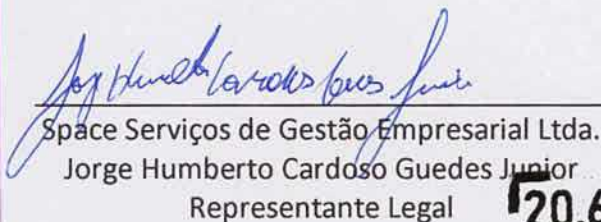 Jorge Humberto Cardoso Guedes Junior
Space Serviços de Gestão Empresarial Ltda.
Jorge Humberto Cardoso Guedes Junior
Representante Legal